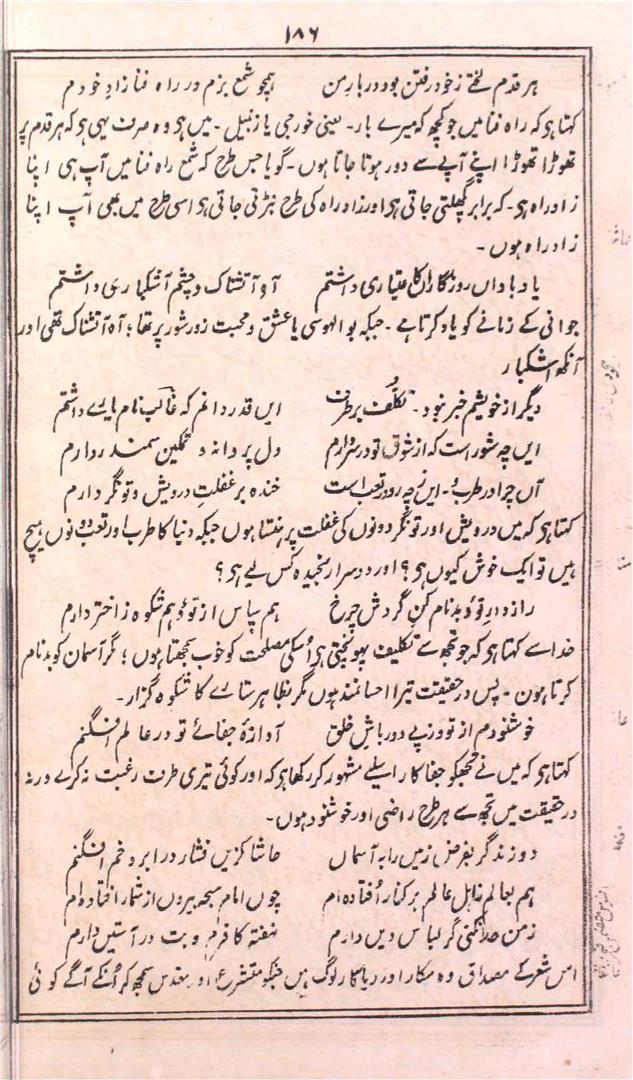 ۱۸۶
ہر قدم لختے ز خود رفتن بود در بارِ من ہمچو شمع بزم در راہ فنا زادِ خودم
کہتا ہو کہ راہ فنا میں جو کچھ کہ میرے بار۔ یعنی خورجی یا زنبیل۔ میں ہو وہ صرف یہی ہو کہ ہر قدم پر
تھوڑا تھوڑا اپنے آپے سے دور ہوتا جاتا ہوں۔ گویا جس طرح کہ شمع راہ فنا میں آپ ہی اپنا
زاد راہ ہو۔ کہ برابر گھلتی جاتی ہو اور زاد راہ کی طرح نبڑتی جاتی ہو اسی طرح میں بھی آپ اپنا
زاد راہ ہوں۔
یاد باد آں روزگاراں کاعتباری داشتم آہ آتشناک و چشم اشکباری داشتم
جوانی کے زمانے کو یاد کرتا ہے۔ جبکہ بوالہوسی یا عشق و محبت زور شور پر تھا؛ آہ آتشناک تھی اور
آنکھ اشکبار
دیگر از خویشم خبر نبود۔ تکلّف برطرف ایں قدر دانم کہ غالب نام یارے داشتم
ایں چہ شور است کہ از شوق تو در سر دارم دل پروانہ و تمکین سمندر دارم
آں چرا در طرب و۔ ایں ز چہ رو در تعب است خندہ بر غفلتِ درویش و تونگر دارم
کہتا ہو کہ میں درویش اور تونگر دونوں کی غفلت پر ہنستا ہوں جبکہ دنیا کا طرب اور تعب دونوں ہیچ
ہیں تو ایک خوش کیوں ہو؟ اور دوسرا رنجیدہ کس لیے ہو؟
رازدارِ تو و بدنام کنِ گردش چرخ ہم سپاس از تو و ہم شکوہ ز اختر دارم
خدا سے کہتا ہو کہ جو تجھ سے تکلیف پہونچتی ہو اُسکی مصلحت کو خوب سمجھتا ہوں؛ مگر آسمان کو بدنام
کرتا ہون۔ پس در حقیقت تیرا احسانمند ہوں مگر بظاہر ستارے کا شکوہ گزار۔
خوشنودم از تو و ز پے دورباشِ خلق آوازۂ جفائے تو در عالم افگنم
کہتا ہو کہ میں نے تجھکو جفا کار اسلیے مشہور کر رکھا ہو کہ اور کوئی تیری طرف رغبت نہ کرے ورنہ
در حقیقت میں تجھ سے ہر طرح راضی اور خوشنود ہوں۔
دوزند گر بفرض زمیں را بہ آسماں حاشا کزیں فشار در ابرو خم افگنم
ہم بعالم ز اہل عالم بر کنار اُفتادہ ام چوں امام سبحہ بیروں از شمار افتادہ ام
ز من حذر نکنی گر لباس دیں دارم نہفتہ کافرم و بت در آستیں دارم
اس شعر کے مصداق وہ مکار اور ریاکار لوگ ہیں جنکو متشرع اور مقدس سمجھ کر اُنکے آگے کوئی